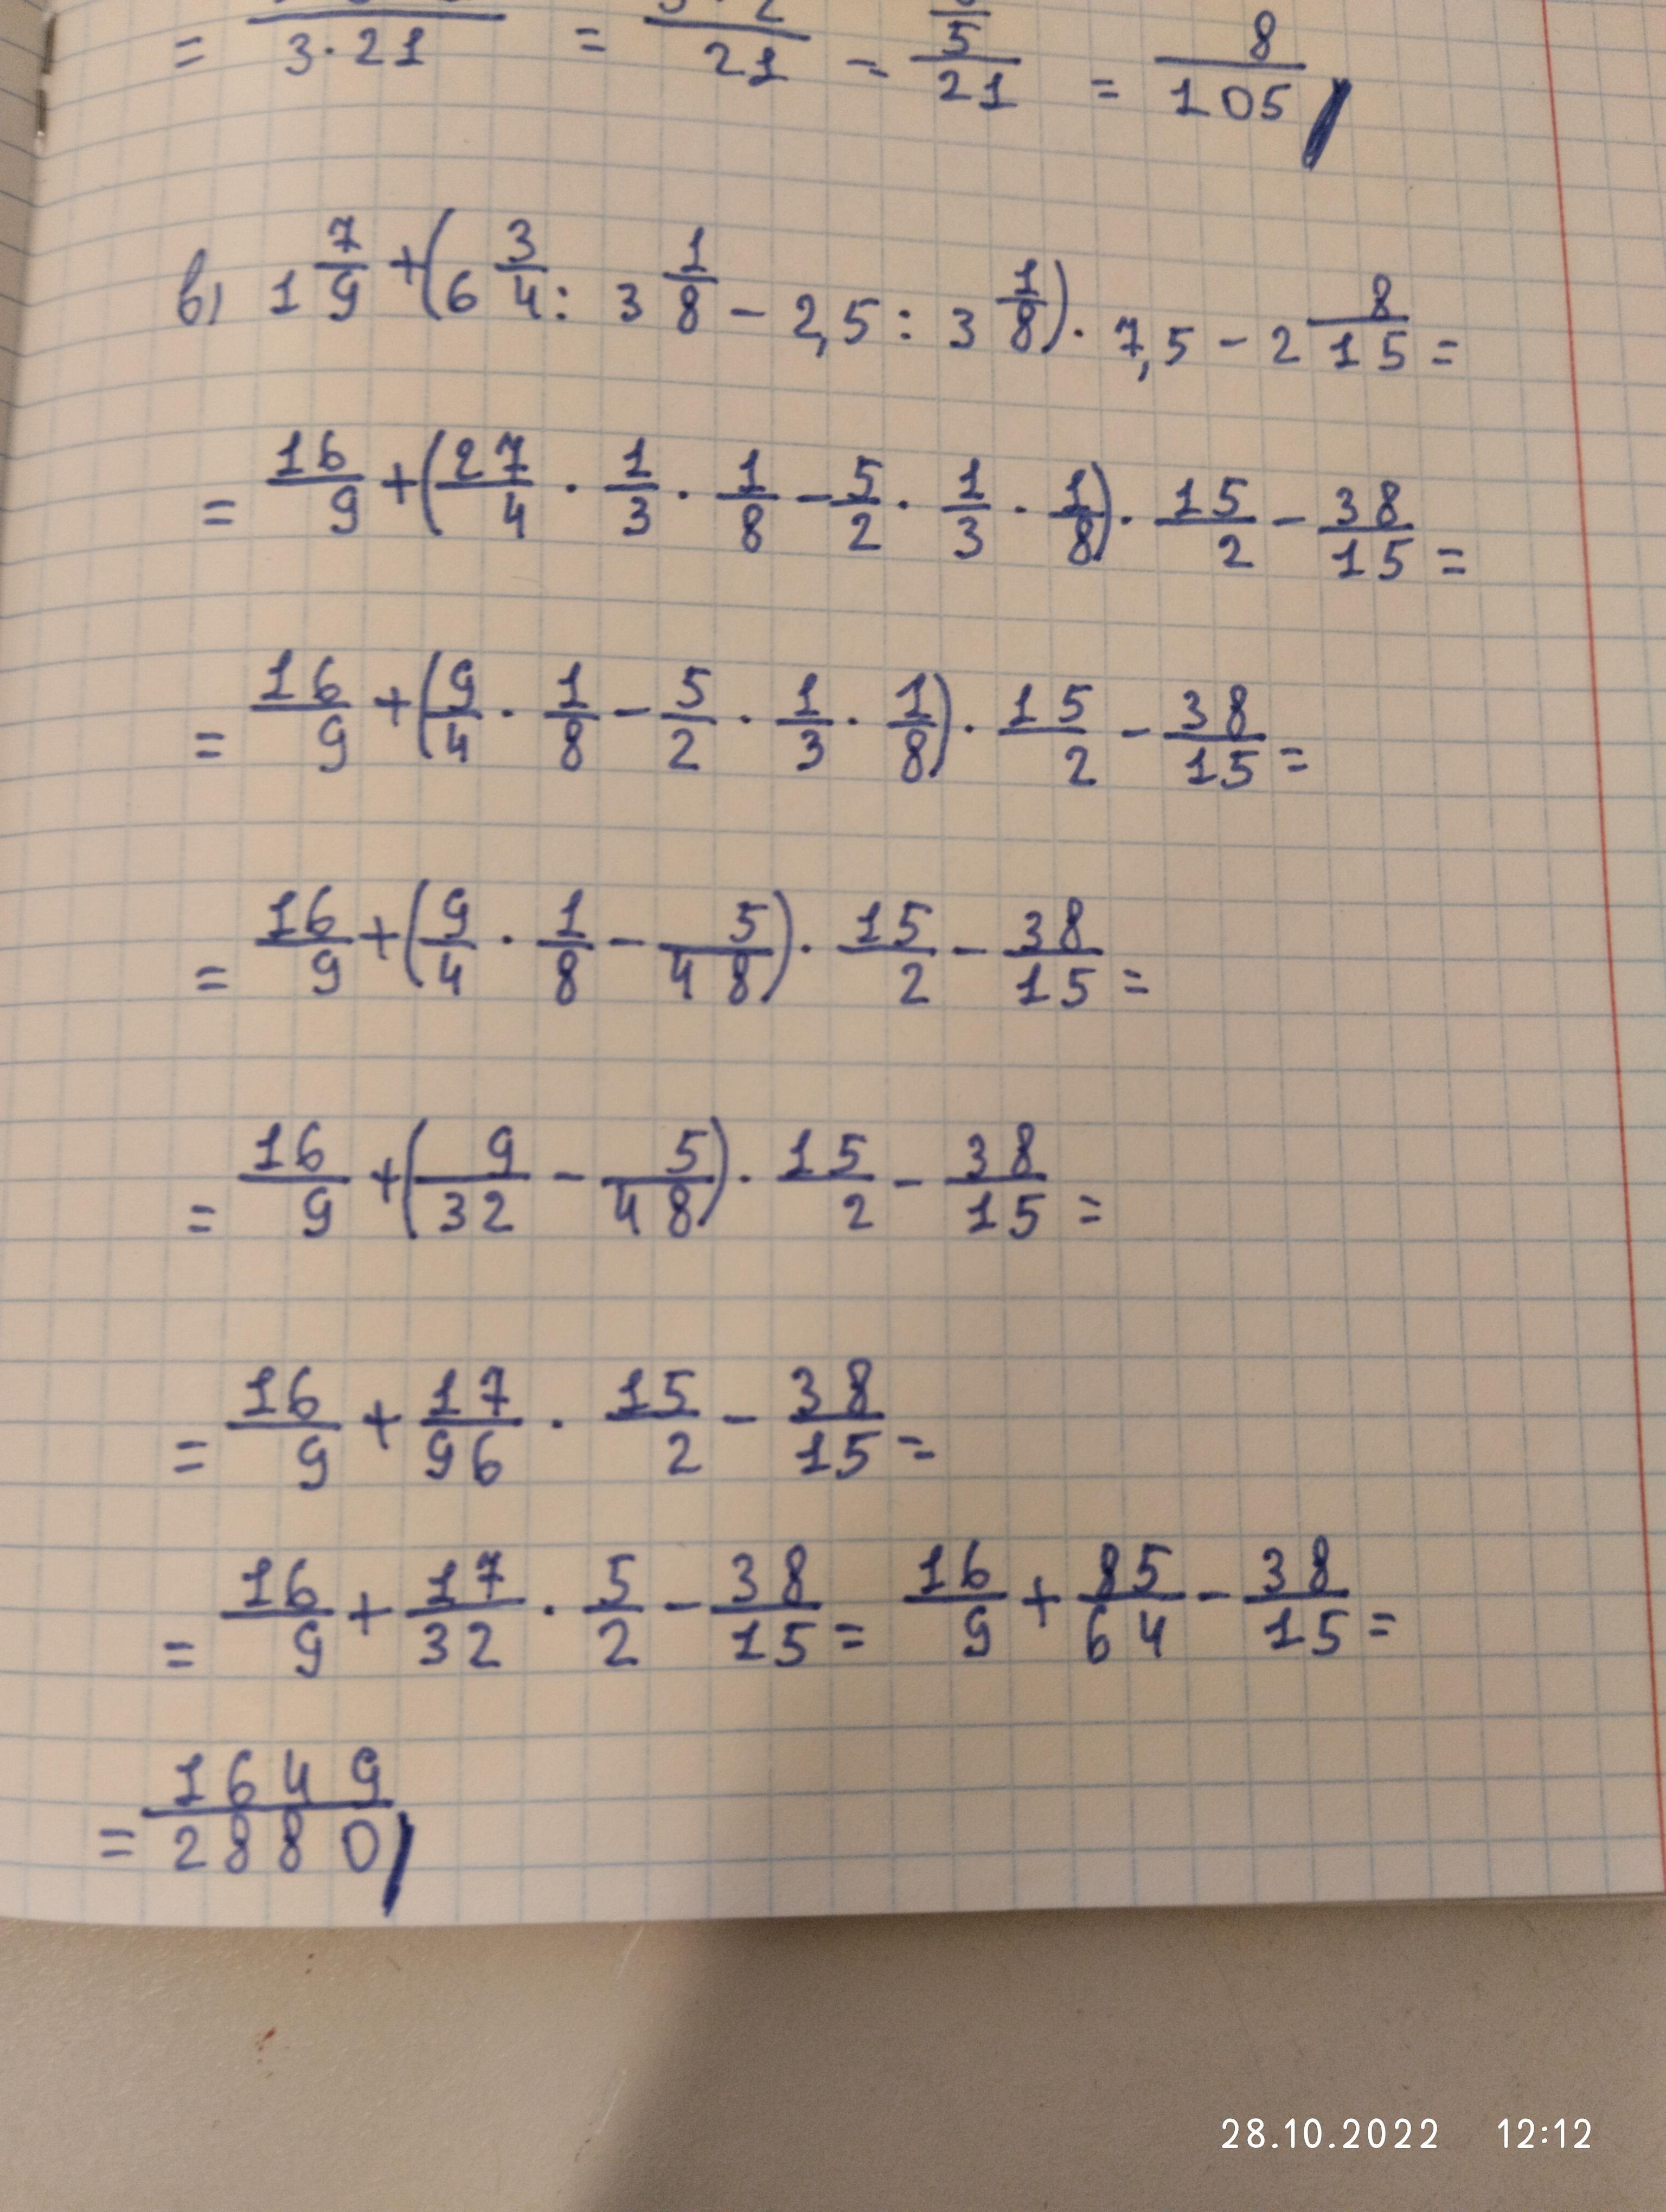 = 3·21 = 21 = 5/21 = 8/105
в) 1 7/9 + (6 3/4 : 3 1/8 - 2,5 : 3 1/8) · 7,5 - 2 8/15 =
= 16/9 + (27/4 · 1/3 · 1/8 - 5/2 · 1/3 · 1/8) · 15/2 - 38/15 =
= 16/9 + (9/4 · 1/8 - 5/2 · 1/3 · 1/8) · 15/2 - 38/15 =
= 16/9 + (9/4 · 1/8 - 5/48) · 15/2 - 38/15 =
= 16/9 + (9/32 - 5/48) · 15/2 - 38/15 =
= 16/9 + 17/96 · 15/2 - 38/15 =
= 16/9 + 17/32 · 5/2 - 38/15 = 16/9 + 85/64 - 38/15 =
= 1649/2880
28.10.2022 12:12